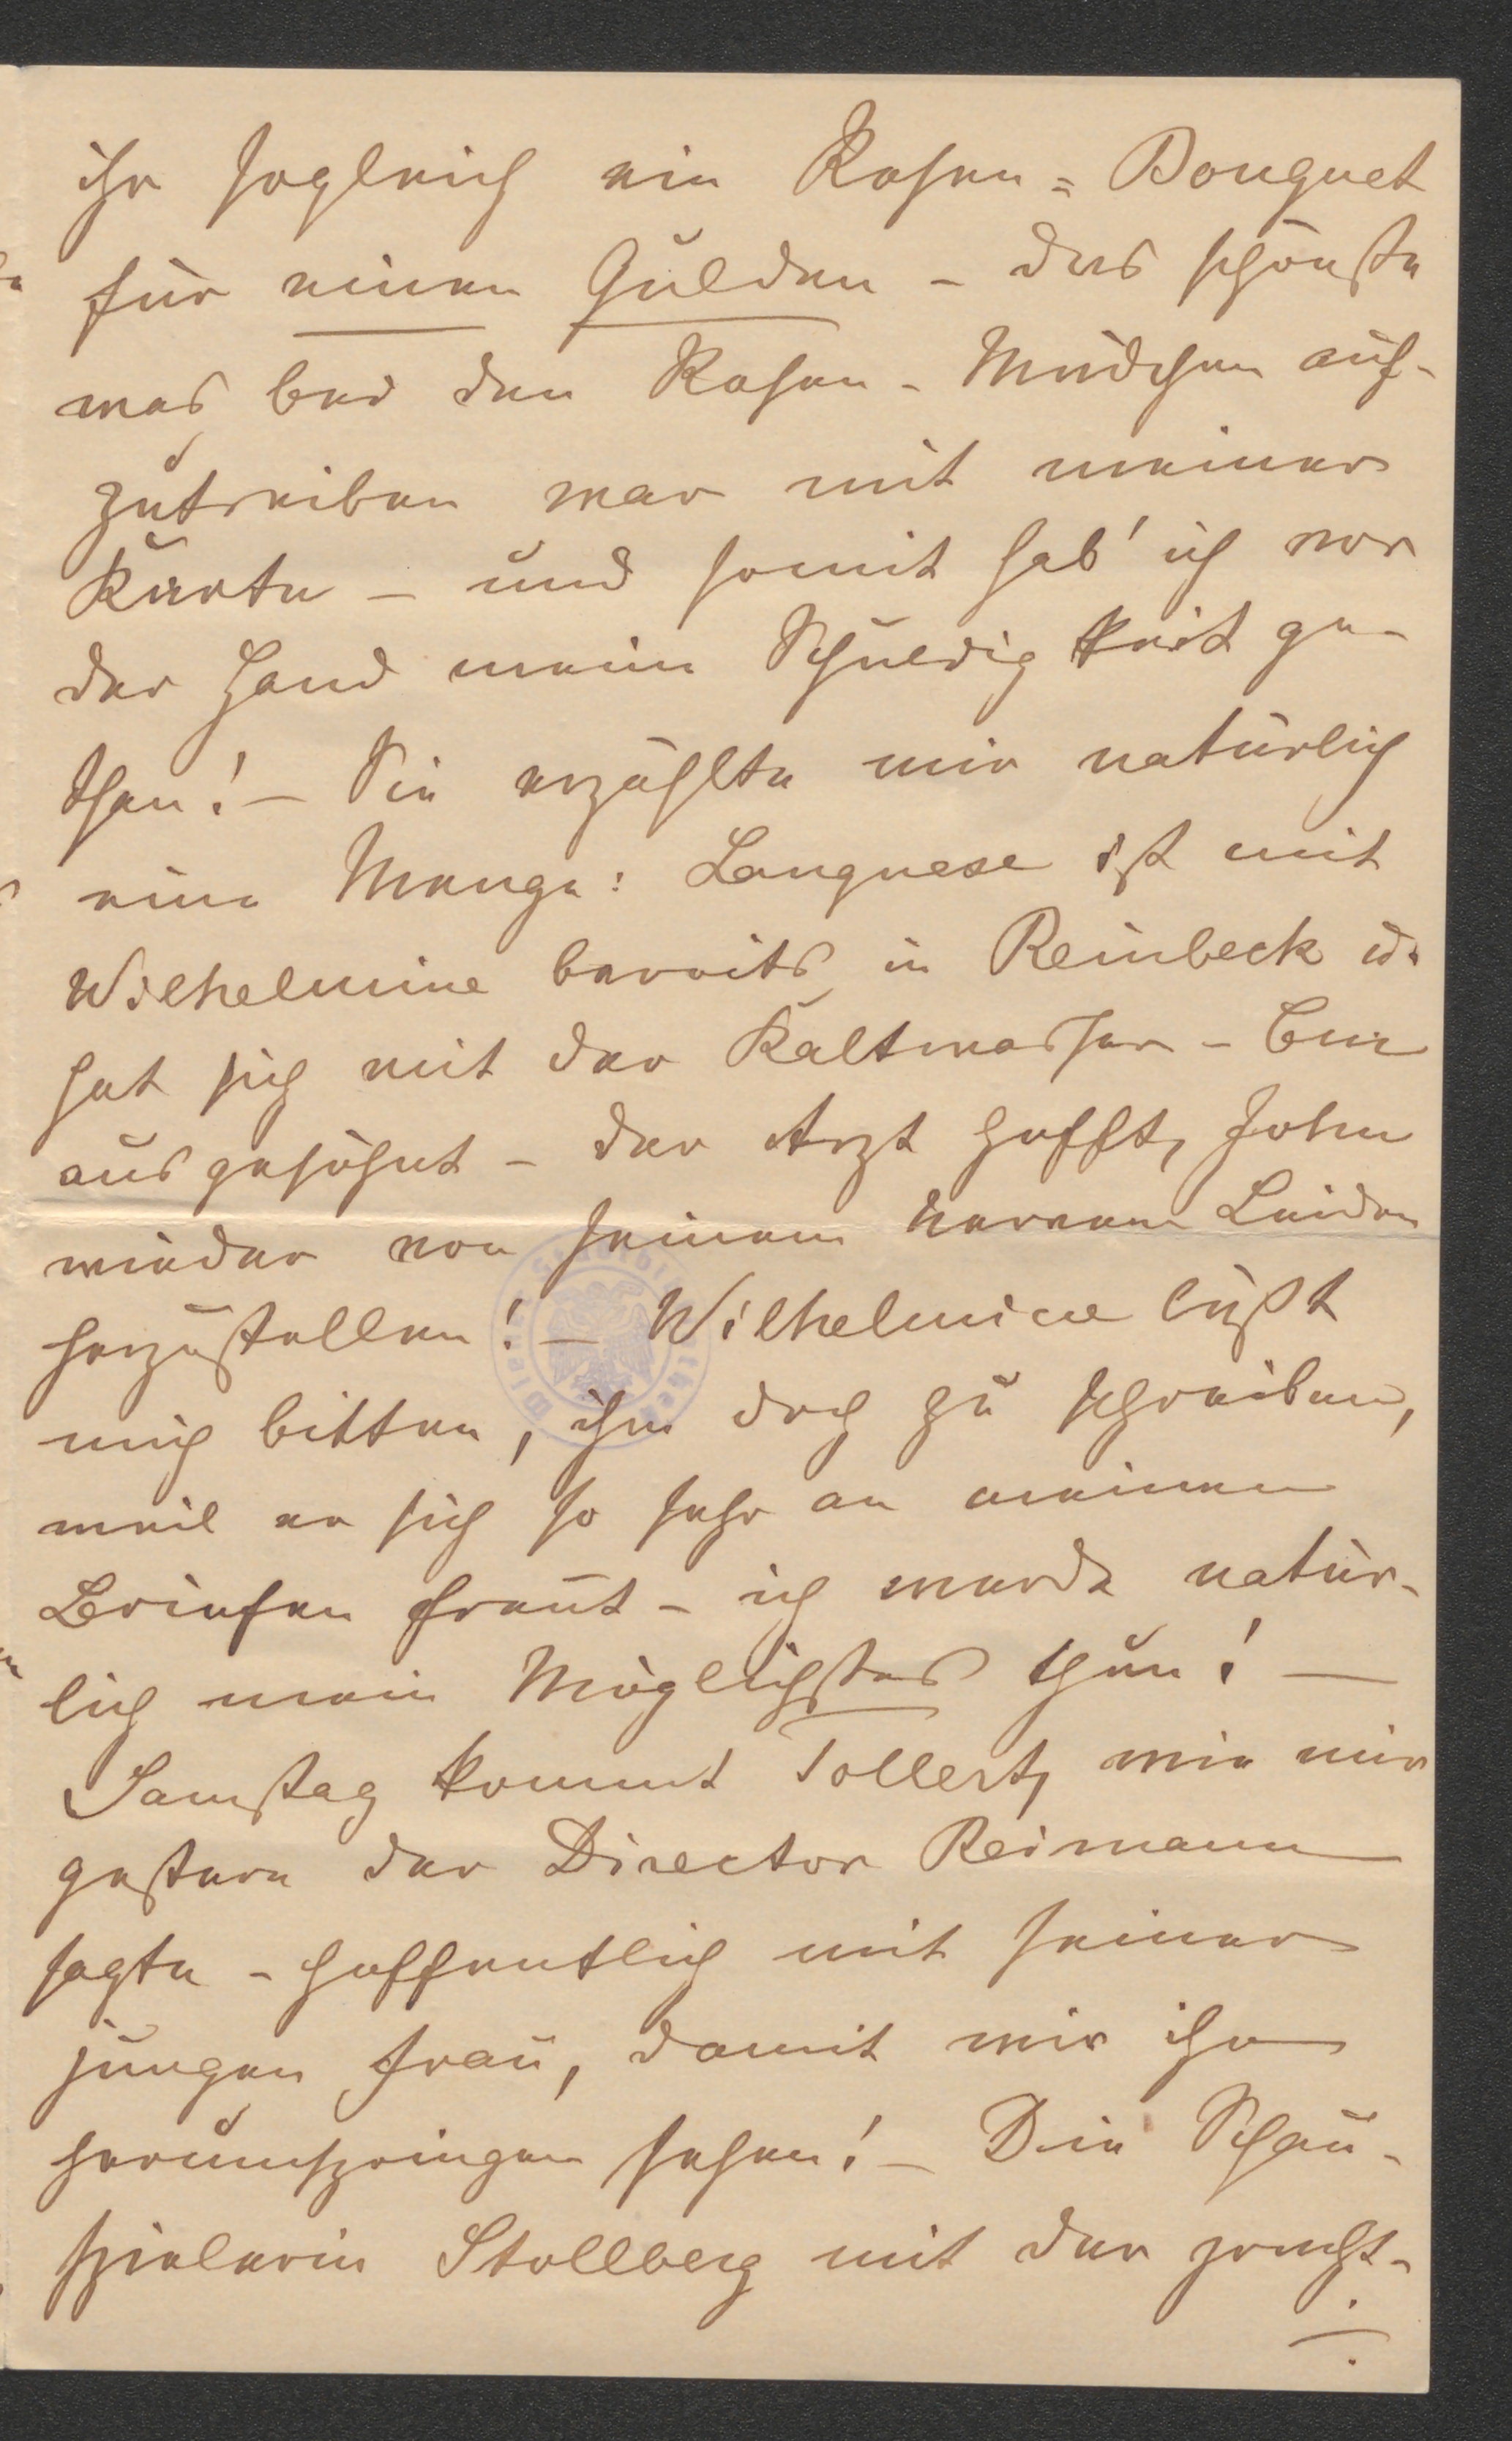 ihr sogleich ein Rosen=Bouquet
für einen Gulden – das schönste
was bei den Rosen-Mädchen auf-
zutreiben war mit meiner
Karte – und somit hab' ich vor
der Hand meine Schuldigkeit ge-
than! – Sie erzählte mir natürlich
eine Menge: Langnese ist mit
Wilhelmine bereits in Reinbeck u.
hat sich mit der Kaltwasser-Cur
ausgesöhnt – der Arzt hofft, John
wieder von seinem Nerven Leiden
herzustellen! – Wilhelmine läßt
mich bitten, ihm doch zu schreiben,
weil er sich so sehr an meinen
Briefen freut – ich werde natür-
lich mein Möglichstes thun! –
Samstag kommt Tollert, wie mir
gestern der Director Reimann
sagte – hoffentlich mit seiner
jungen Frau, damit wir ihn
herumspringen sehen! – Die Schau-
spielerin Stollberg mit der pracht-
./.